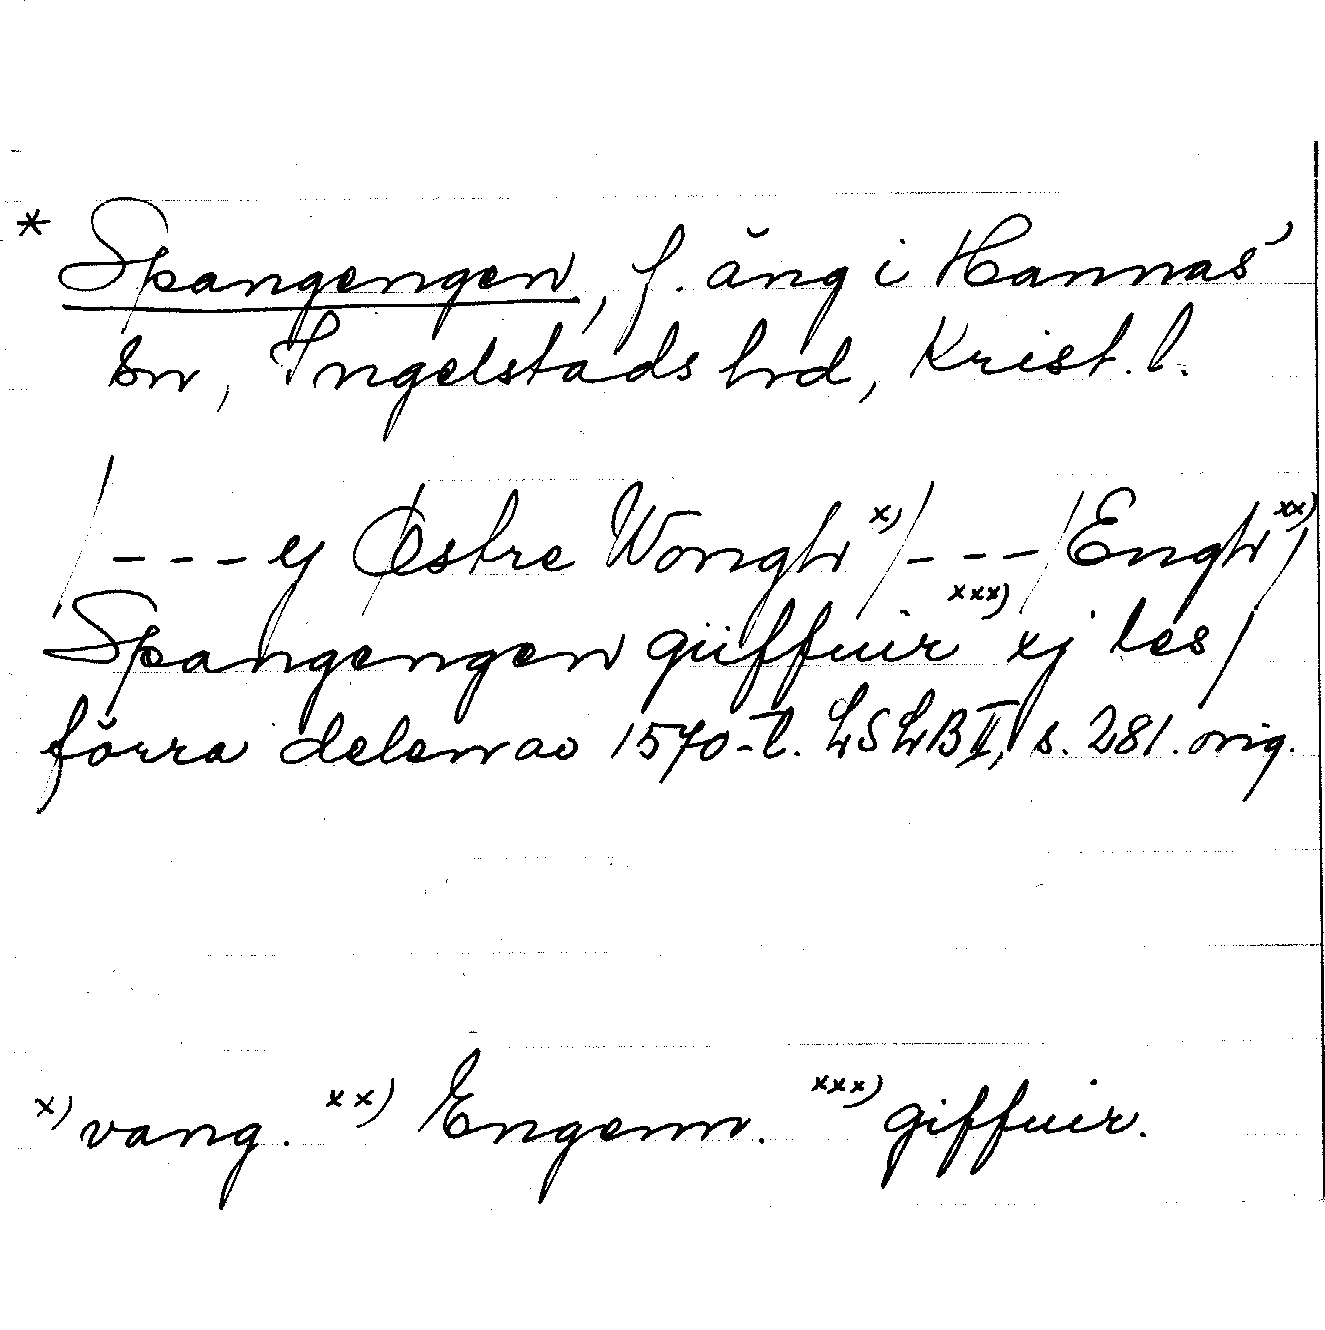 * Spangengen, f. äng i Hannas'
sn, Ingelstads hrd, Krist. l.
/---ej Østre Wongh x)/---/Engh xx)/
Spangengen güffuir xxx) xj les/
förra delen av 1570-t. LSLB II, s. 281. orig.
x) vang. xx) Engenn. xxx) giffuir.